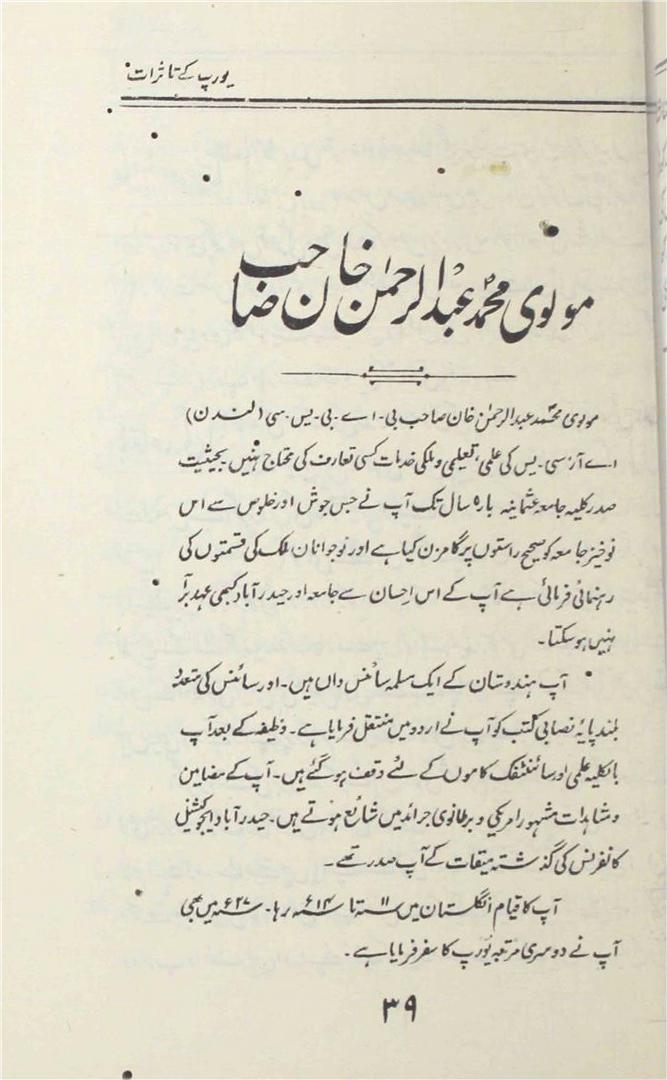 یورپ کے تاثرات
مولوی محمد عبدالرحمٰن خان صاحب
مولوی محمد عبدالرحمٰن خان صاحب بی۔ اے۔ بی۔ یس۔ سی (لندن)
اے آر۔ سی۔ یس کی علمی، تعلیمی و ملکی خدمات کسی تعارف کی محتاج نہیں بحیثیت
صدر کلیہ جامعہ عثمانیہ بارہ سال تک آپ نے جس جوش اور خلوص سے اس
نوخیز جامعہ کو صحیح راستوں پر گامزن کیا ہے اور نوجوانان ملک کی قسمتوں کی
رہنمائی فرمائی ہے آپ کے اس احسان سے جامعہ اور حیدرآباد کبھی عہدبرآ
نہیں ہو سکتا۔
آپ ہندوستان کے ایک مسلمہ سائنس داں ہیں۔ اور سائنس کی متعدد
بلند پایہ نصابی کتب کو آپ نے اردو میں منتقل فرمایا ہے۔ وظیفہ کے بعد آپ
بالکلیہ علمی اور سائنٹفک کاموں کے لئے وقف ہو گئے ہیں۔ آپ کے مضامین
و مشاہدات مشہور امریکی و برطانوی جرائد میں شائع ہوتے ہیں۔ حیدرآباد ایجوکیشنل
کانفرنس کی گذشتہ میقات کے آپ صدر تھے۔
آپ کا قیام انگلستان میں سنہ ۱۱ تا سنہ ۱۴ء رہا۔ سنہ ۲۷ء میں بھی
آپ نے دوسری مرتبہ یورپ کا سفر فرمایا ہے۔
۳۹